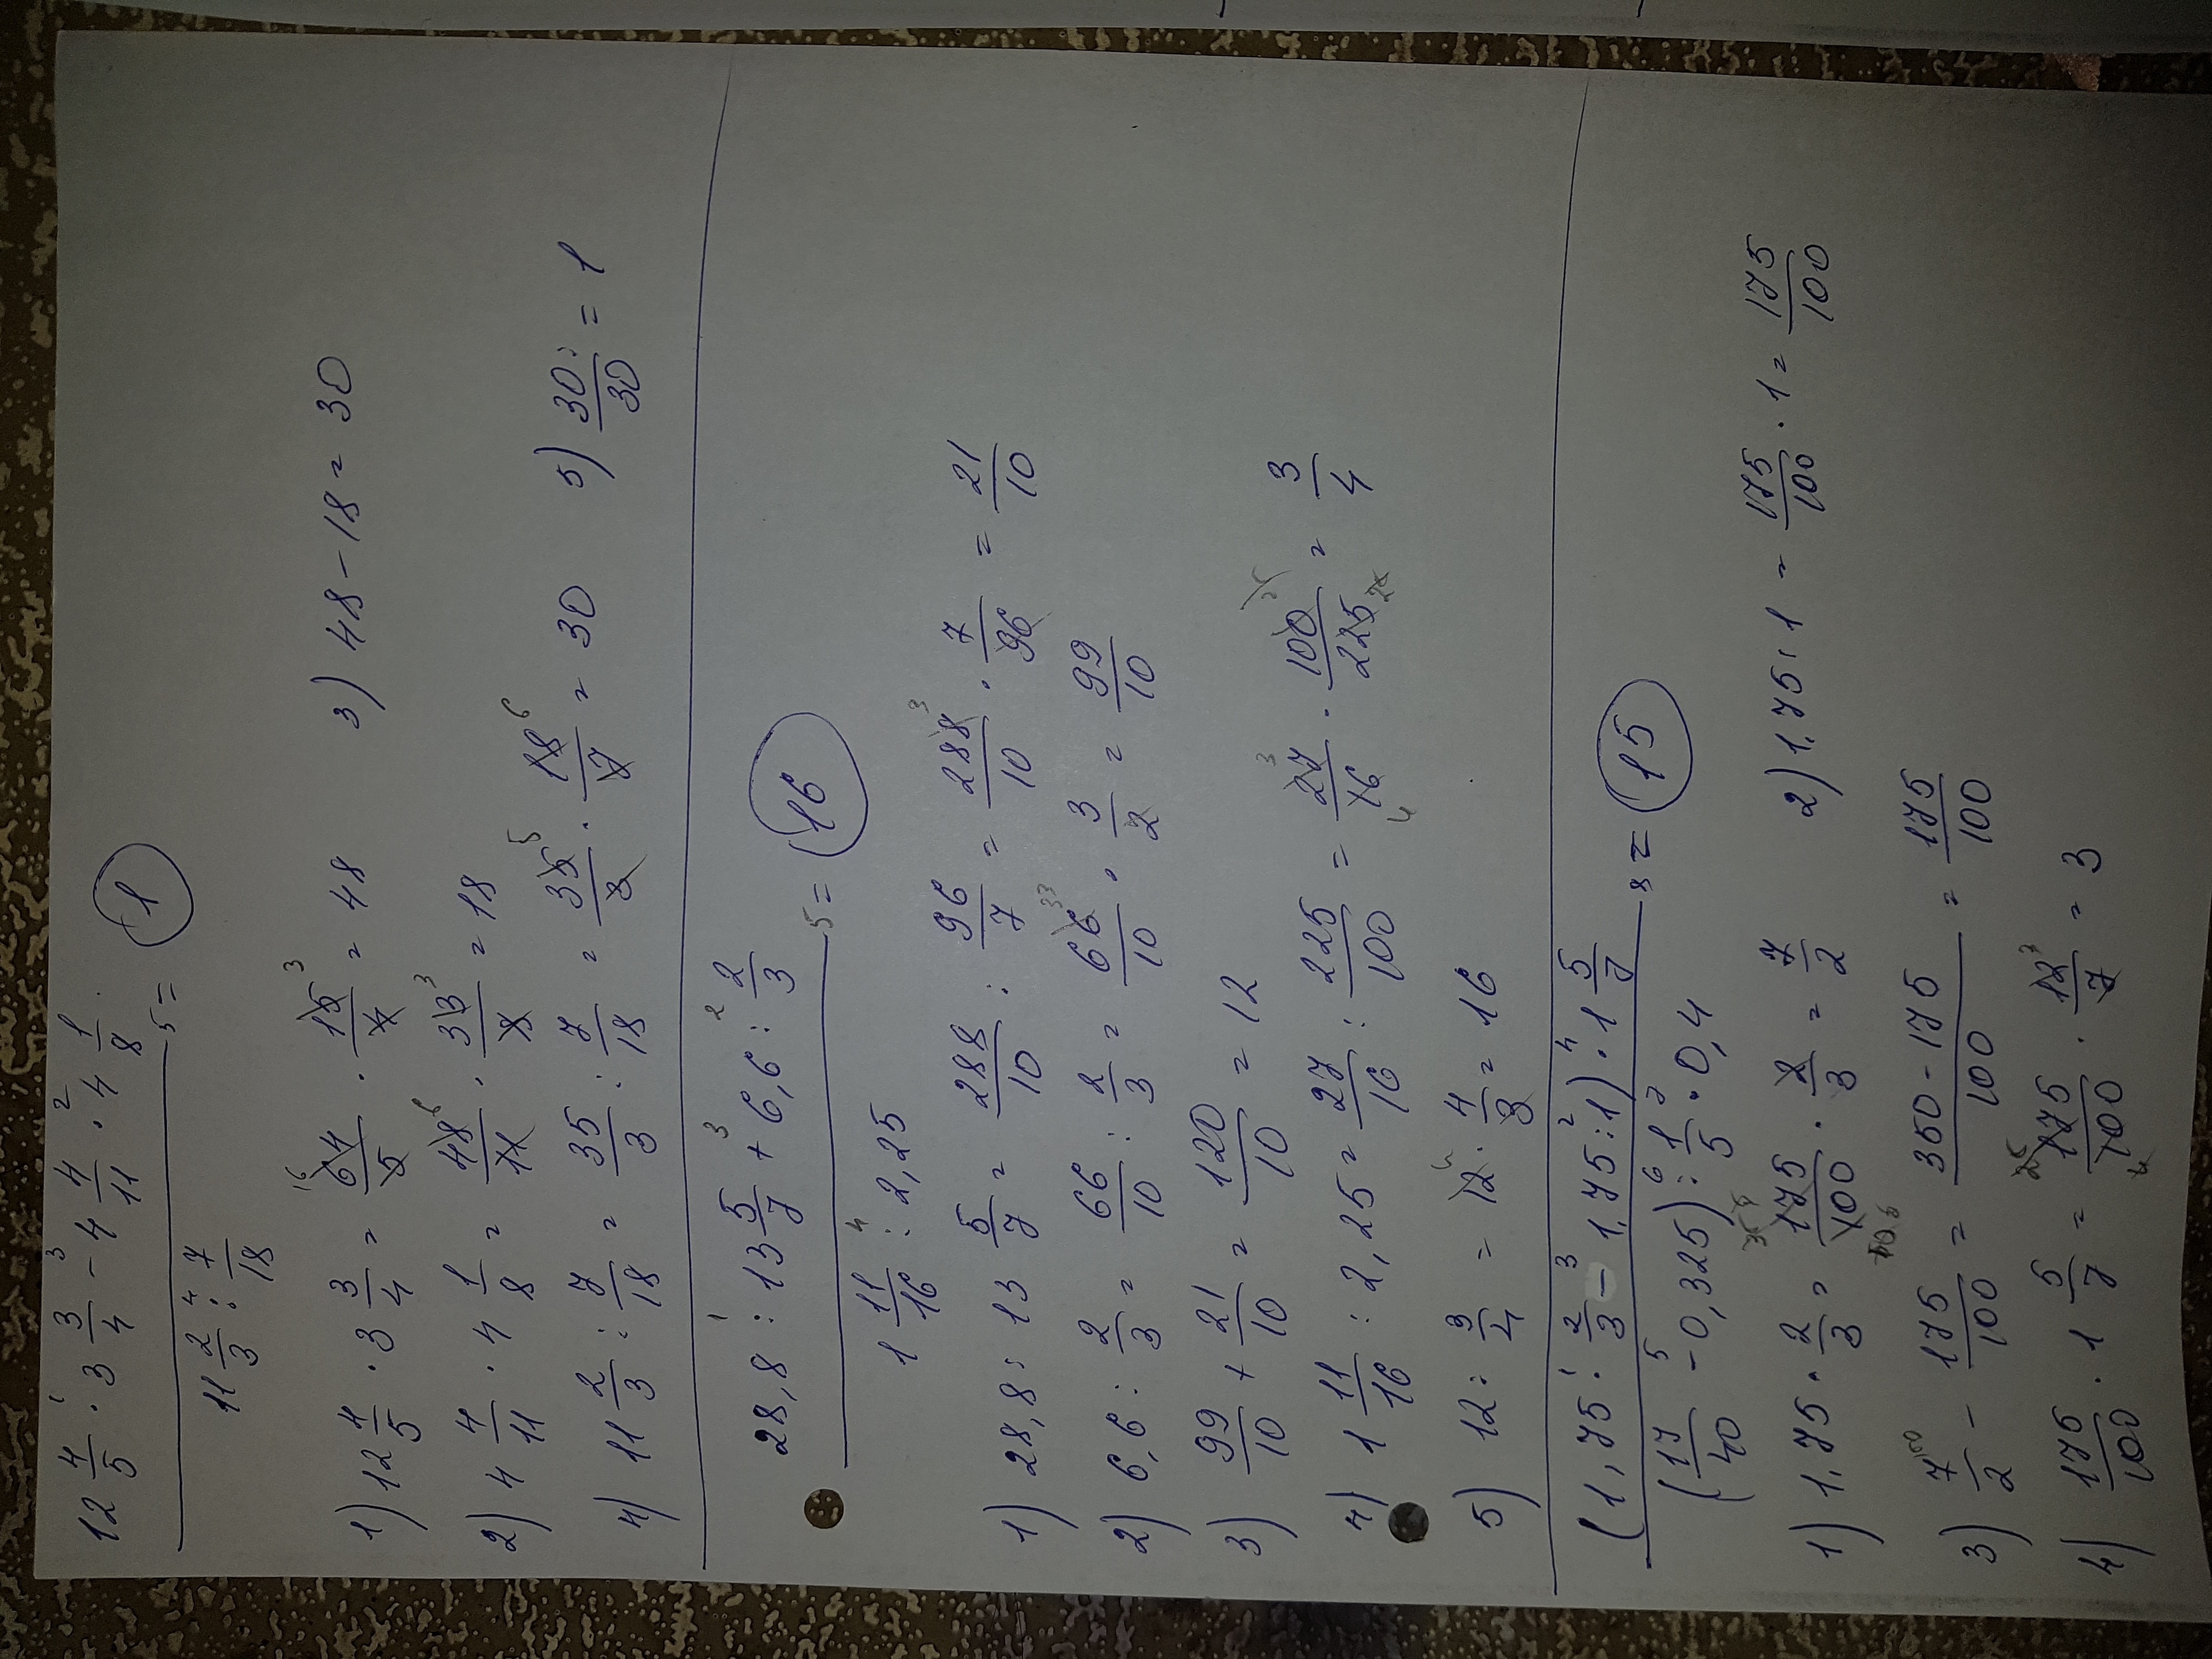 12 4/5 · 3 3/4 - 4 4/11 · 4 1/8
11 2/3 : 7/18 = 1
1) 12 4/5 · 3 3/4 = 64/5 · 15/4 = 48 3) 48 - 18 = 30
2) 4 4/11 · 4 1/8 = 48/11 · 33/8 = 18
4) 11 2/3 : 7/18 = 35/3 : 7/18 = 35/3 · 18/7 = 30 5) 30/30 : = 1
28,8 : 13 5/7 + 6,6 : 2/3
1 11/16 : 2,25 = 16
1) 28,8 : 13 5/7 = 288/10 : 96/7 = 288/10 · 7/96 = 21/10
2) 6,6 : 2/3 = 66/10 : 2/3 = 66/10 · 3/2 = 99/10
3) 99/10 + 21/10 = 120/10 = 12
4) 1 11/16 : 2,25 = 27/16 : 225/100 = 27/16 · 100/225 = 3/4
5) 12 : 3/4 = 12 · 4/3 = 16
(1,75 : 2/3 - 1,75 : 1) · 1 5/7
(17/40 - 0,325) : 1/5 · 0,4 = 15
1) 1,75 · 2/3 = 175/100 · 2/3 = 7/2 2) 1,75 : 1 = 175/100 · 1 = 175/100
3) 7/2 - 175/100 = 350-175/100 = 175/100
4) 175/100 · 1 5/7 = 175/100 · 12/7 = 3